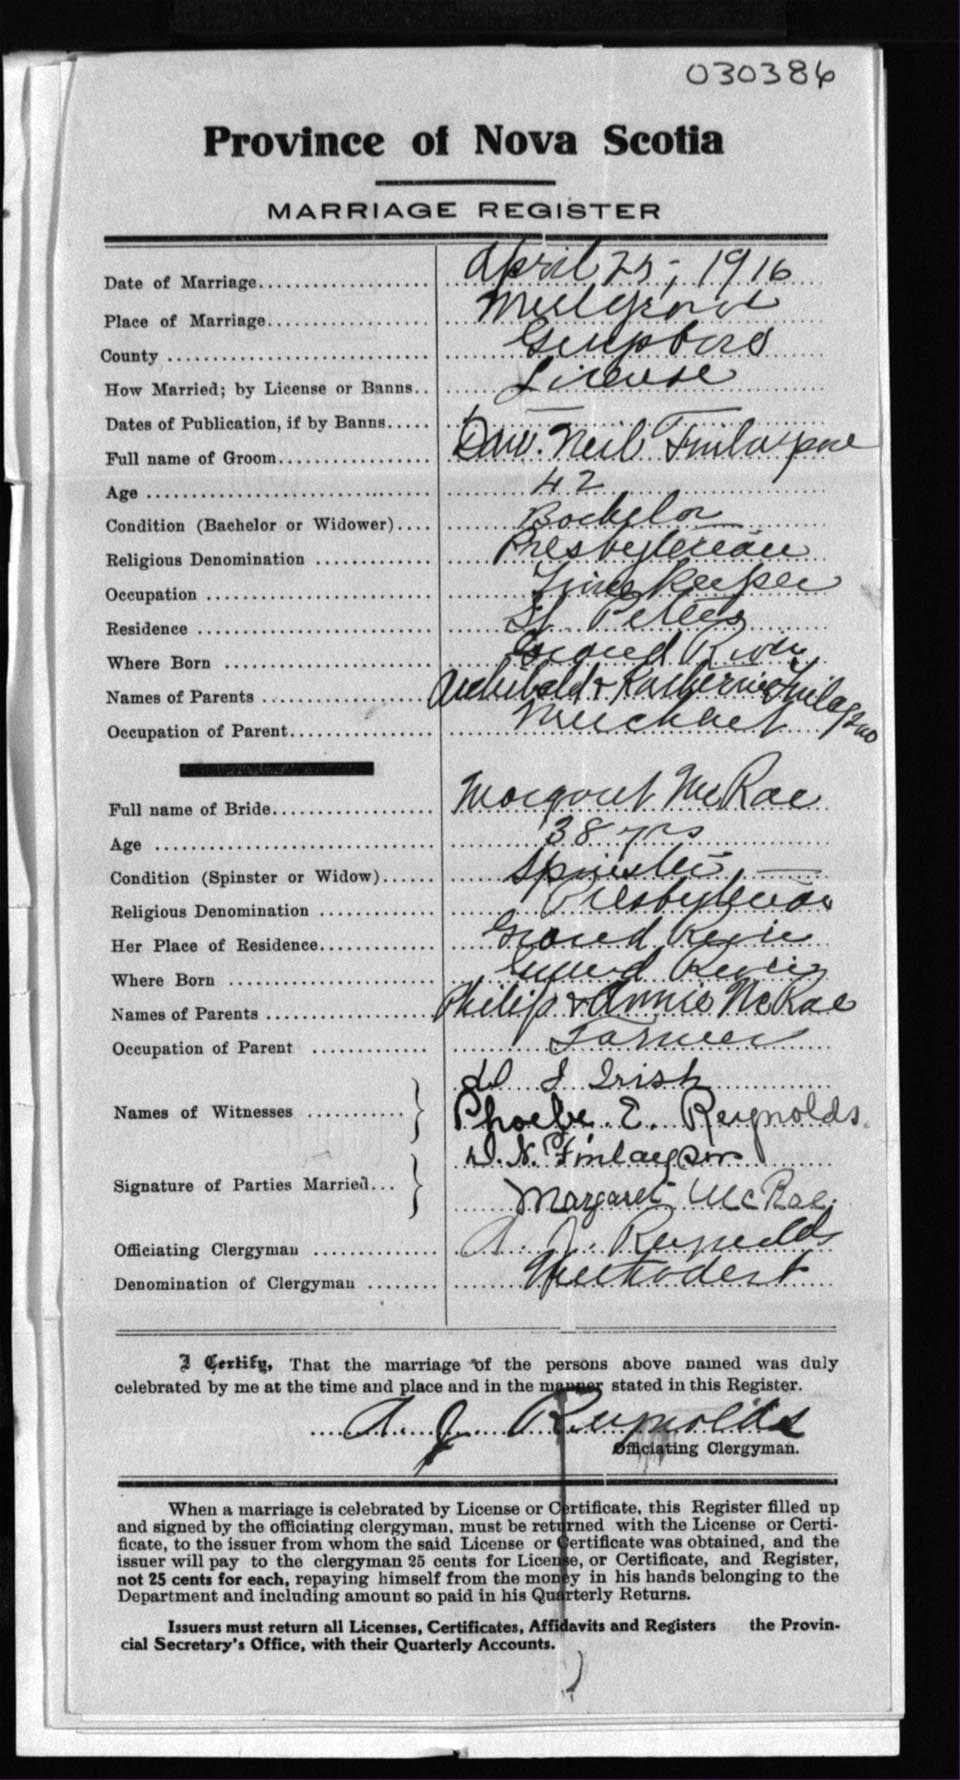 030386
Province of Nova Scotia
MARRIAGE REGISTER
Date of Marriage April 25, 1916
Place of Marriage
County Guysboro
How Married; by License or Banns License
Dates of Publication, if by Banns —
Full name of Groom Dan. Neil Finlayson
Age 42
Condition (Bachelor or Widower) Bachelor
Religious Denomination Presbyterian
Occupation Time Keeper
Residence St. Peters
Where Born Grand River
Names of Parents Archibald & Katherine Finlayson
Occupation of Parent Merchant
Full name of Bride Margaret McRae
Age 38 yrs
Condition (Spinster or Widow) Spinster —
Religious Denomination Presbyterian
Her Place of Residence Grand River
Where Born Grand River
Names of Parents Philip & Annie McRae
Occupation of Parent Farmer
Names of Witnesses J Irish
Phoebe. E. Reynolds.
Signature of Parties Married D. N. Finlayson
Margaret McRae.
Officiating Clergyman A. J. Reynolds
Denomination of Clergyman Methodist
I Certify, That the marriage of the persons above named was duly
celebrated by me at the time and place and in the manner stated in this Register.
A. J. Reynolds
Officiating Clergyman.
When a marriage is celebrated by License or Certificate, this Register filled up
and signed by the officiating clergyman, must be returned with the License or Certi-
ficate, to the issuer from whom the said License or Certificate was obtained, and the
issuer will pay to the clergyman 25 cents for License, or Certificate, and Register,
not 25 cents for each, repaying himself from the money in his hands belonging to the
Department and including amount so paid in his Quarterly Returns.
Issuers must return all Licenses, Certificates, Affidavits and Registers the Provin-
cial Secretary's Office, with their Quarterly Accounts.